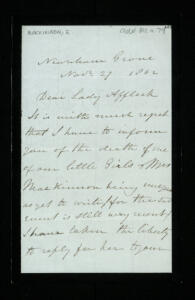 MACKINNON, E
Add. MS. a.
Newnham Grove
Nov 27 1862
Dear Lady Affleck
It is with much regret
that I have to inform
you of the death of one
of our little Girls & Mrs
Mackinnon being
as yet to write, for the
event is still very recent
I have taken the liberty
to reply for her to your